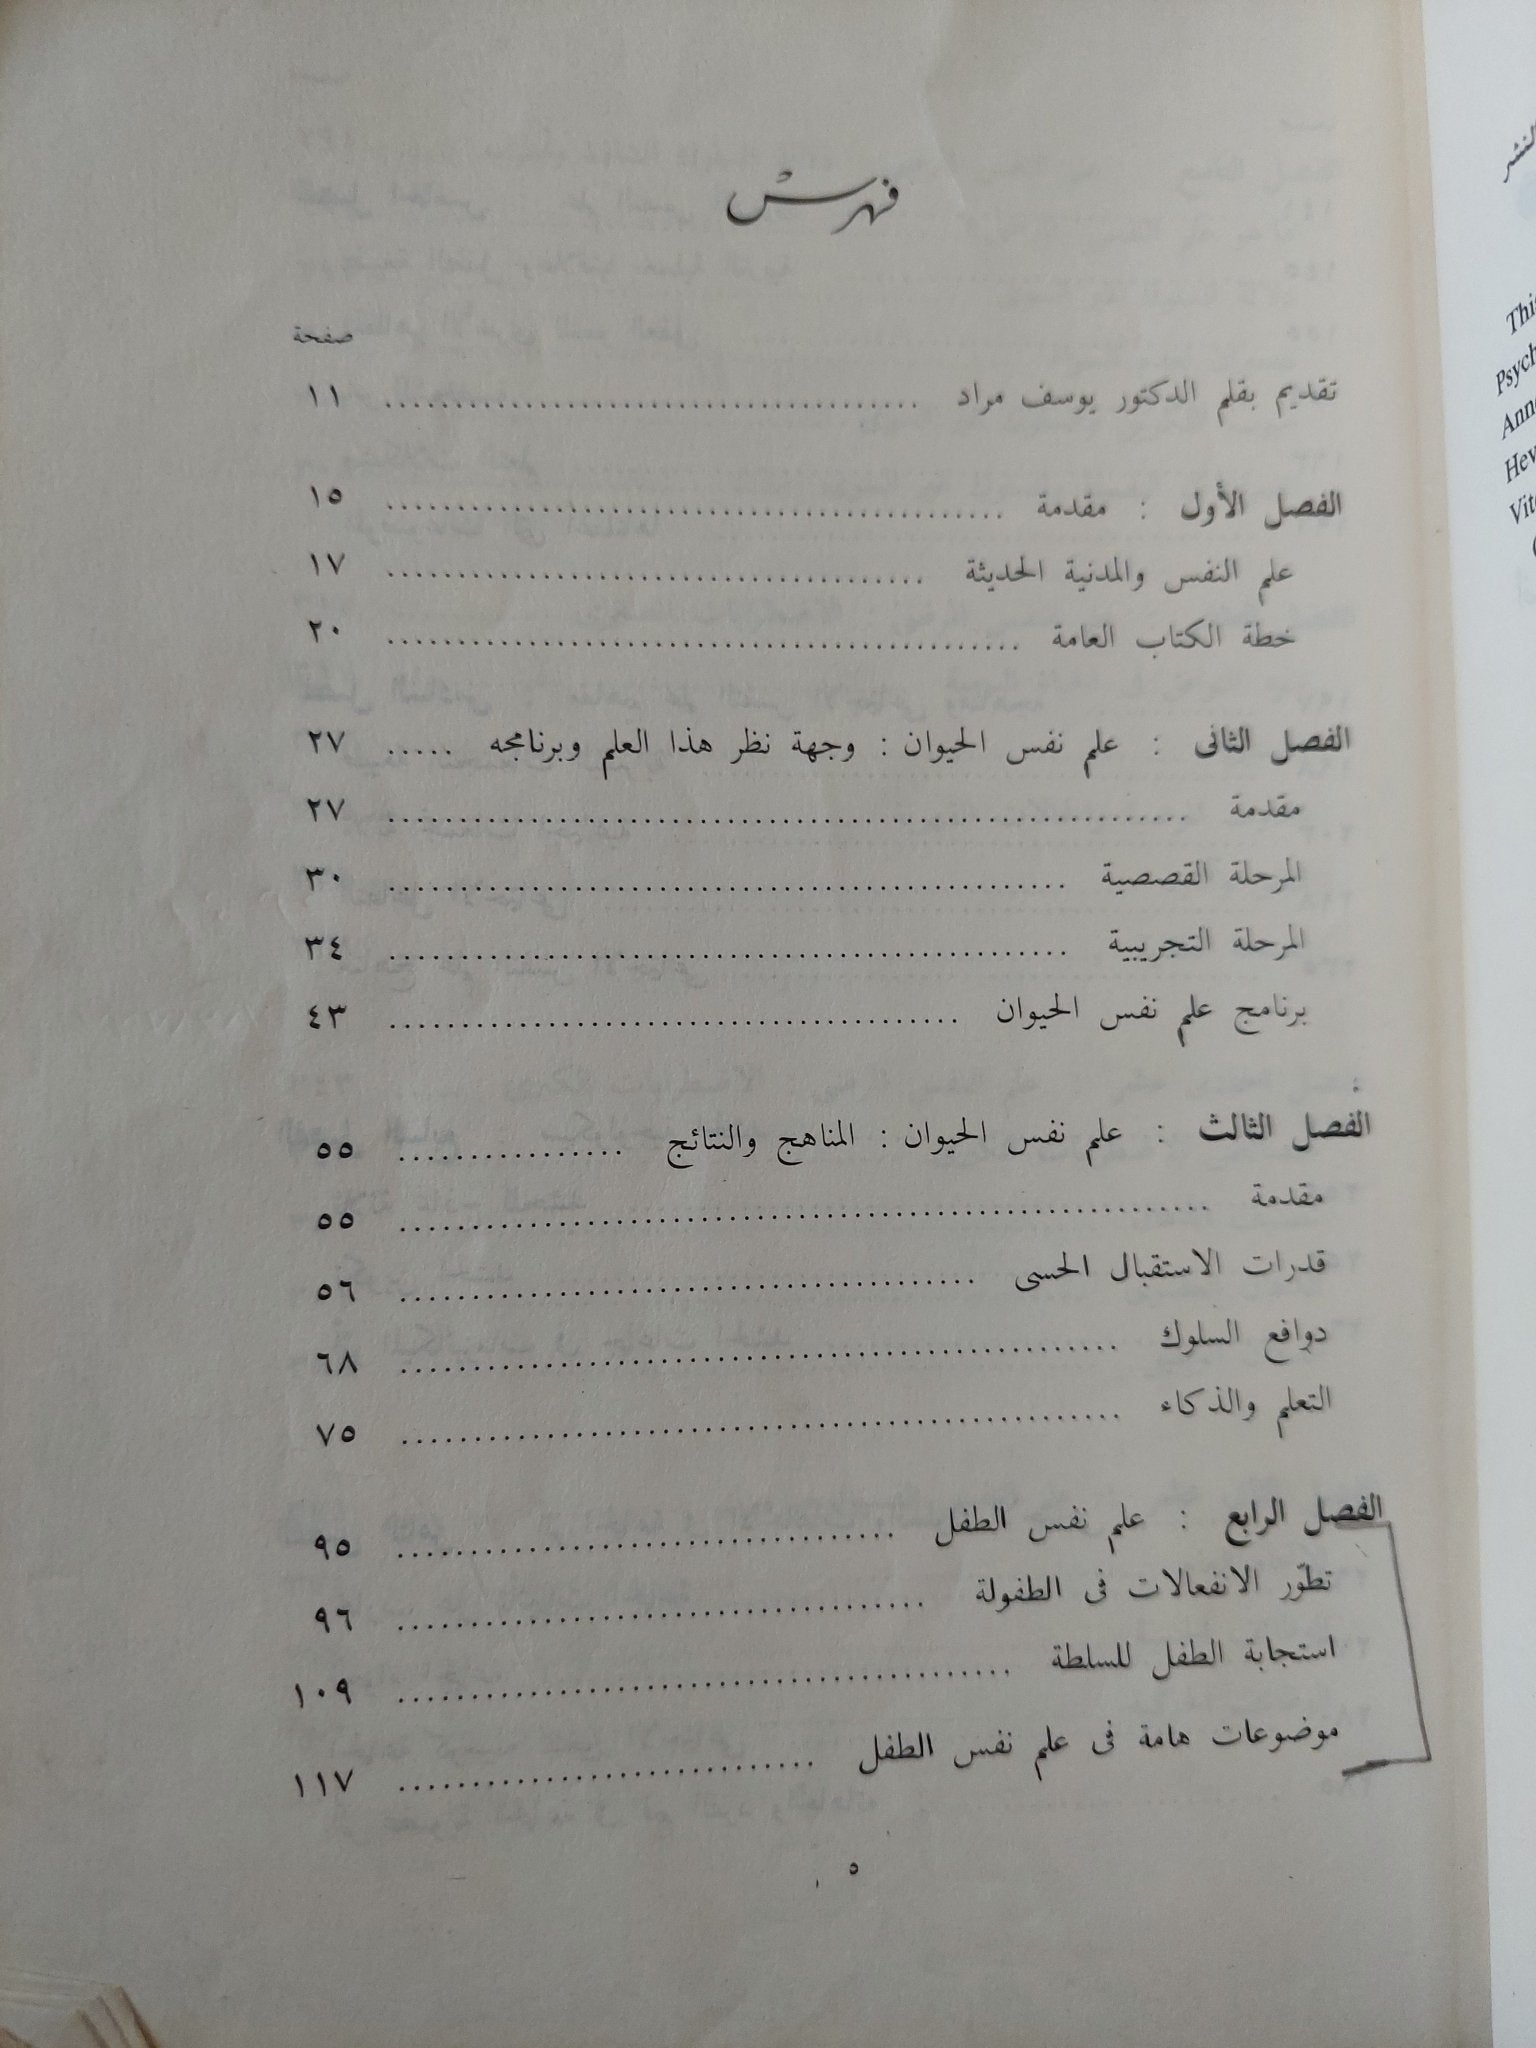 فهرس
صفحة
تقديم بقلم الدكتور يوسف مراد ........................................ ١١
الفصل الأول : مقدمة ........................................ ١٥
علم النفس والمدنية الحديثة ........................................ ١٧
خطة الكتاب العامة ........................................ ٢٠
الفصل الثانى : علم نفس الحيوان : وجهة نظر هذا العلم وبرنامجه ..... ٢٧
مقدمة ........................................ ٢٧
المرحلة القصصية ........................................ ٣٠
المرحلة التجريبية ........................................ ٣٤
برنامج علم نفس الحيوان ........................................ ٤٣
الفصل الثالث : علم نفس الحيوان : المناهج والنتائج ................ ٥٥
مقدمة ........................................ ٥٥
قدرات الاستقبال الحسى ........................................ ٥٦
دوافع السلوك ........................................ ٦٨
التعلم والذكاء ........................................ ٧٥
الفصل الرابع : علم نفس الطفل ........................................ ٩٥
تطوّر الانفعالات فى الطفولة ........................................ ٩٦
استجابة الطفل للسلطة ........................................ ١٠٩
موضوعات هامة فى علم نفس الطفل .............................. ١١٧
٥
النشر
This
Psych